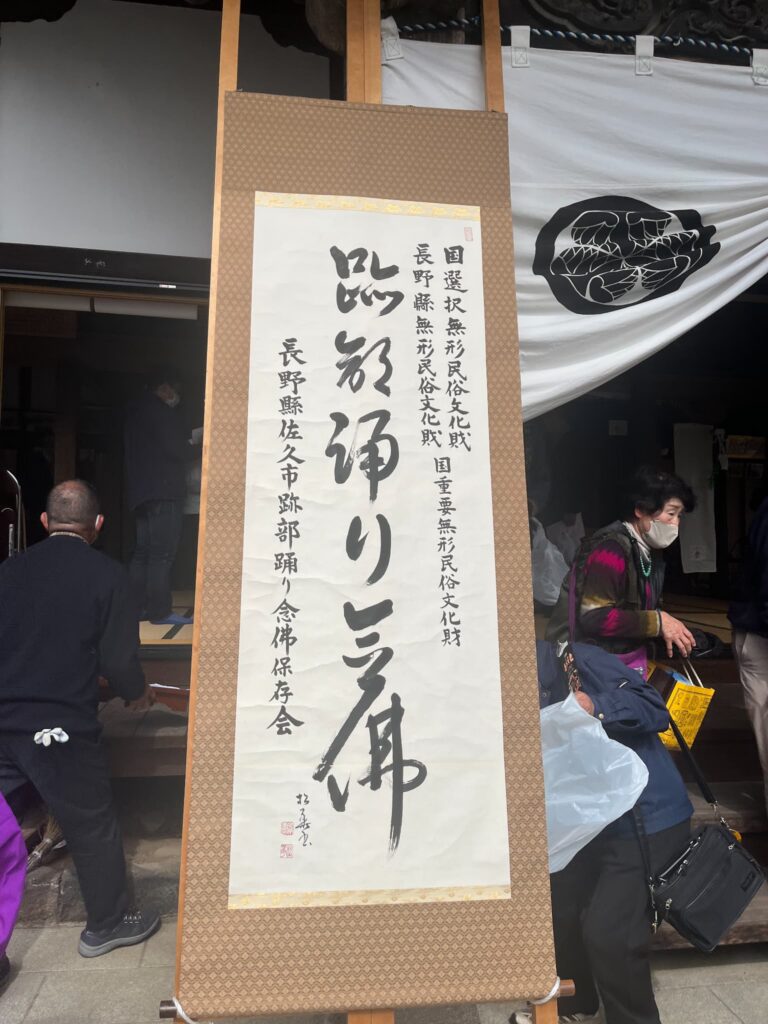 国選択無形民俗文化財
長野縣無形民俗文化財
国重要無形民俗文化財
跡部踊り念佛
長野縣佐久市跡部踊り念佛保存会